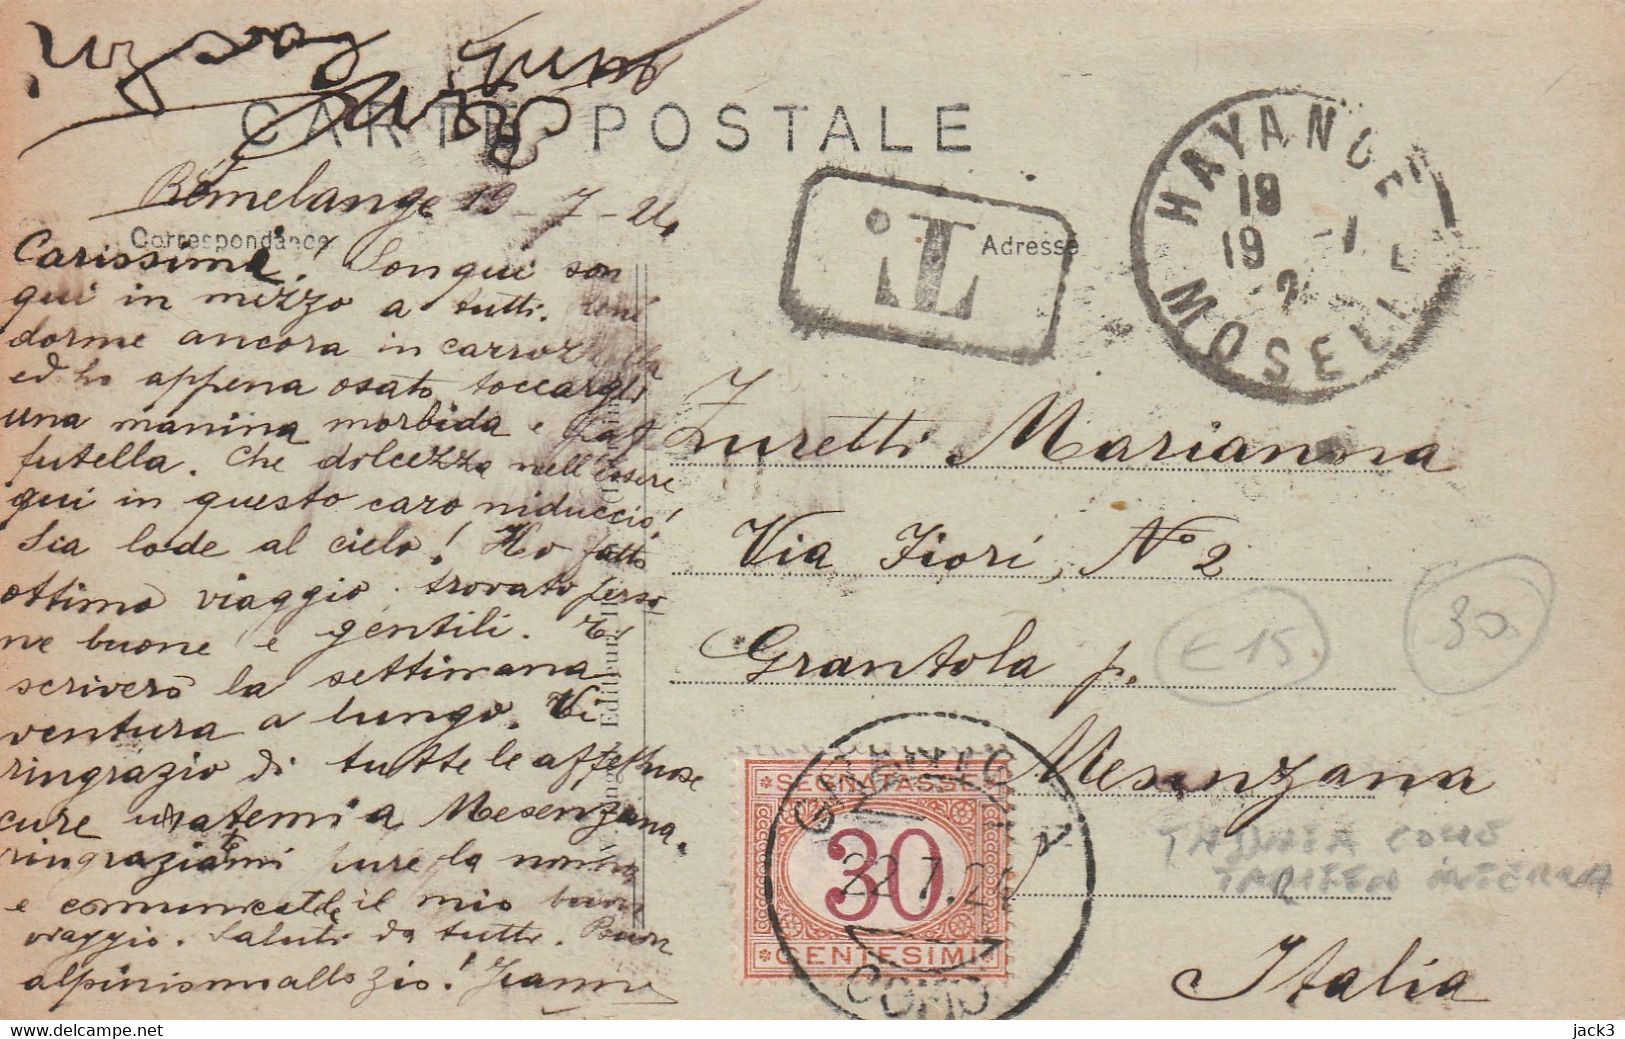 CARTE POSTALE
Rémelange 19-7-24
Correspondance
Adresse
Carissima! Son qui son
qui in mezzo a tutti.
dorme ancora in carroz
ed ho appena osato toccargli
una manina morbida e paf
futella. Che dolcezza nell'essere
qui in questo caro niduccio!
Sia lode al cielo! Ho fatto
ottimo viaggio. trovato perso
ne buone e gentili. Ti
scriverò la settimana
ventura a lungo. Vi
ringrazio di tutte le affettuose
cure usatemi a Mesenzana.
ringraziami pure la nonna
e comunicatele il mio buon
viaggio. Saluti da tutti. Buon
alpinismo allo zio! Jeanne
T
HAYANGE
19
19 -7
MOSELLE
Zuretti Marianna
Via Fiori, No 2
Grantola p.
Mesenzana
Italia
€15.
30.
SEGNATASSE
30
CENTESIMI
22.7.24
COMO
TASSATA COME
TARIFFA INTERNA
Editeur
jack3
delcampe.net